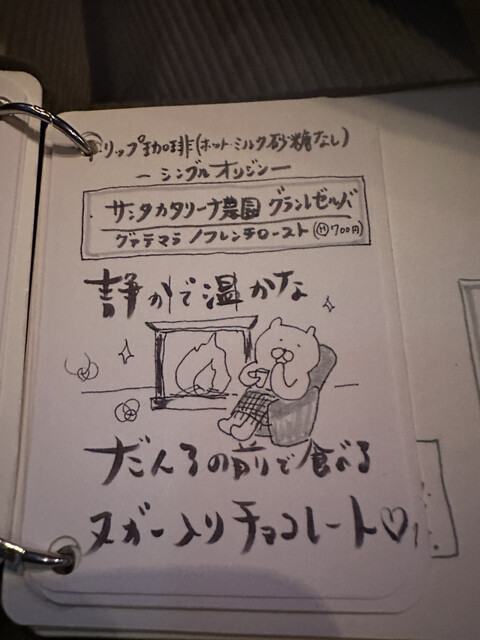 ドリップ珈琲(ホット・ミルク砂糖なし)
ーシングルオリジンー
サンタカタリーナ農園 グランレゼルバ
グァテマラ/フレンチロースト(H700円)
静かで温かな
だんろの前で食べる
ヌガー入りチョコレート♡